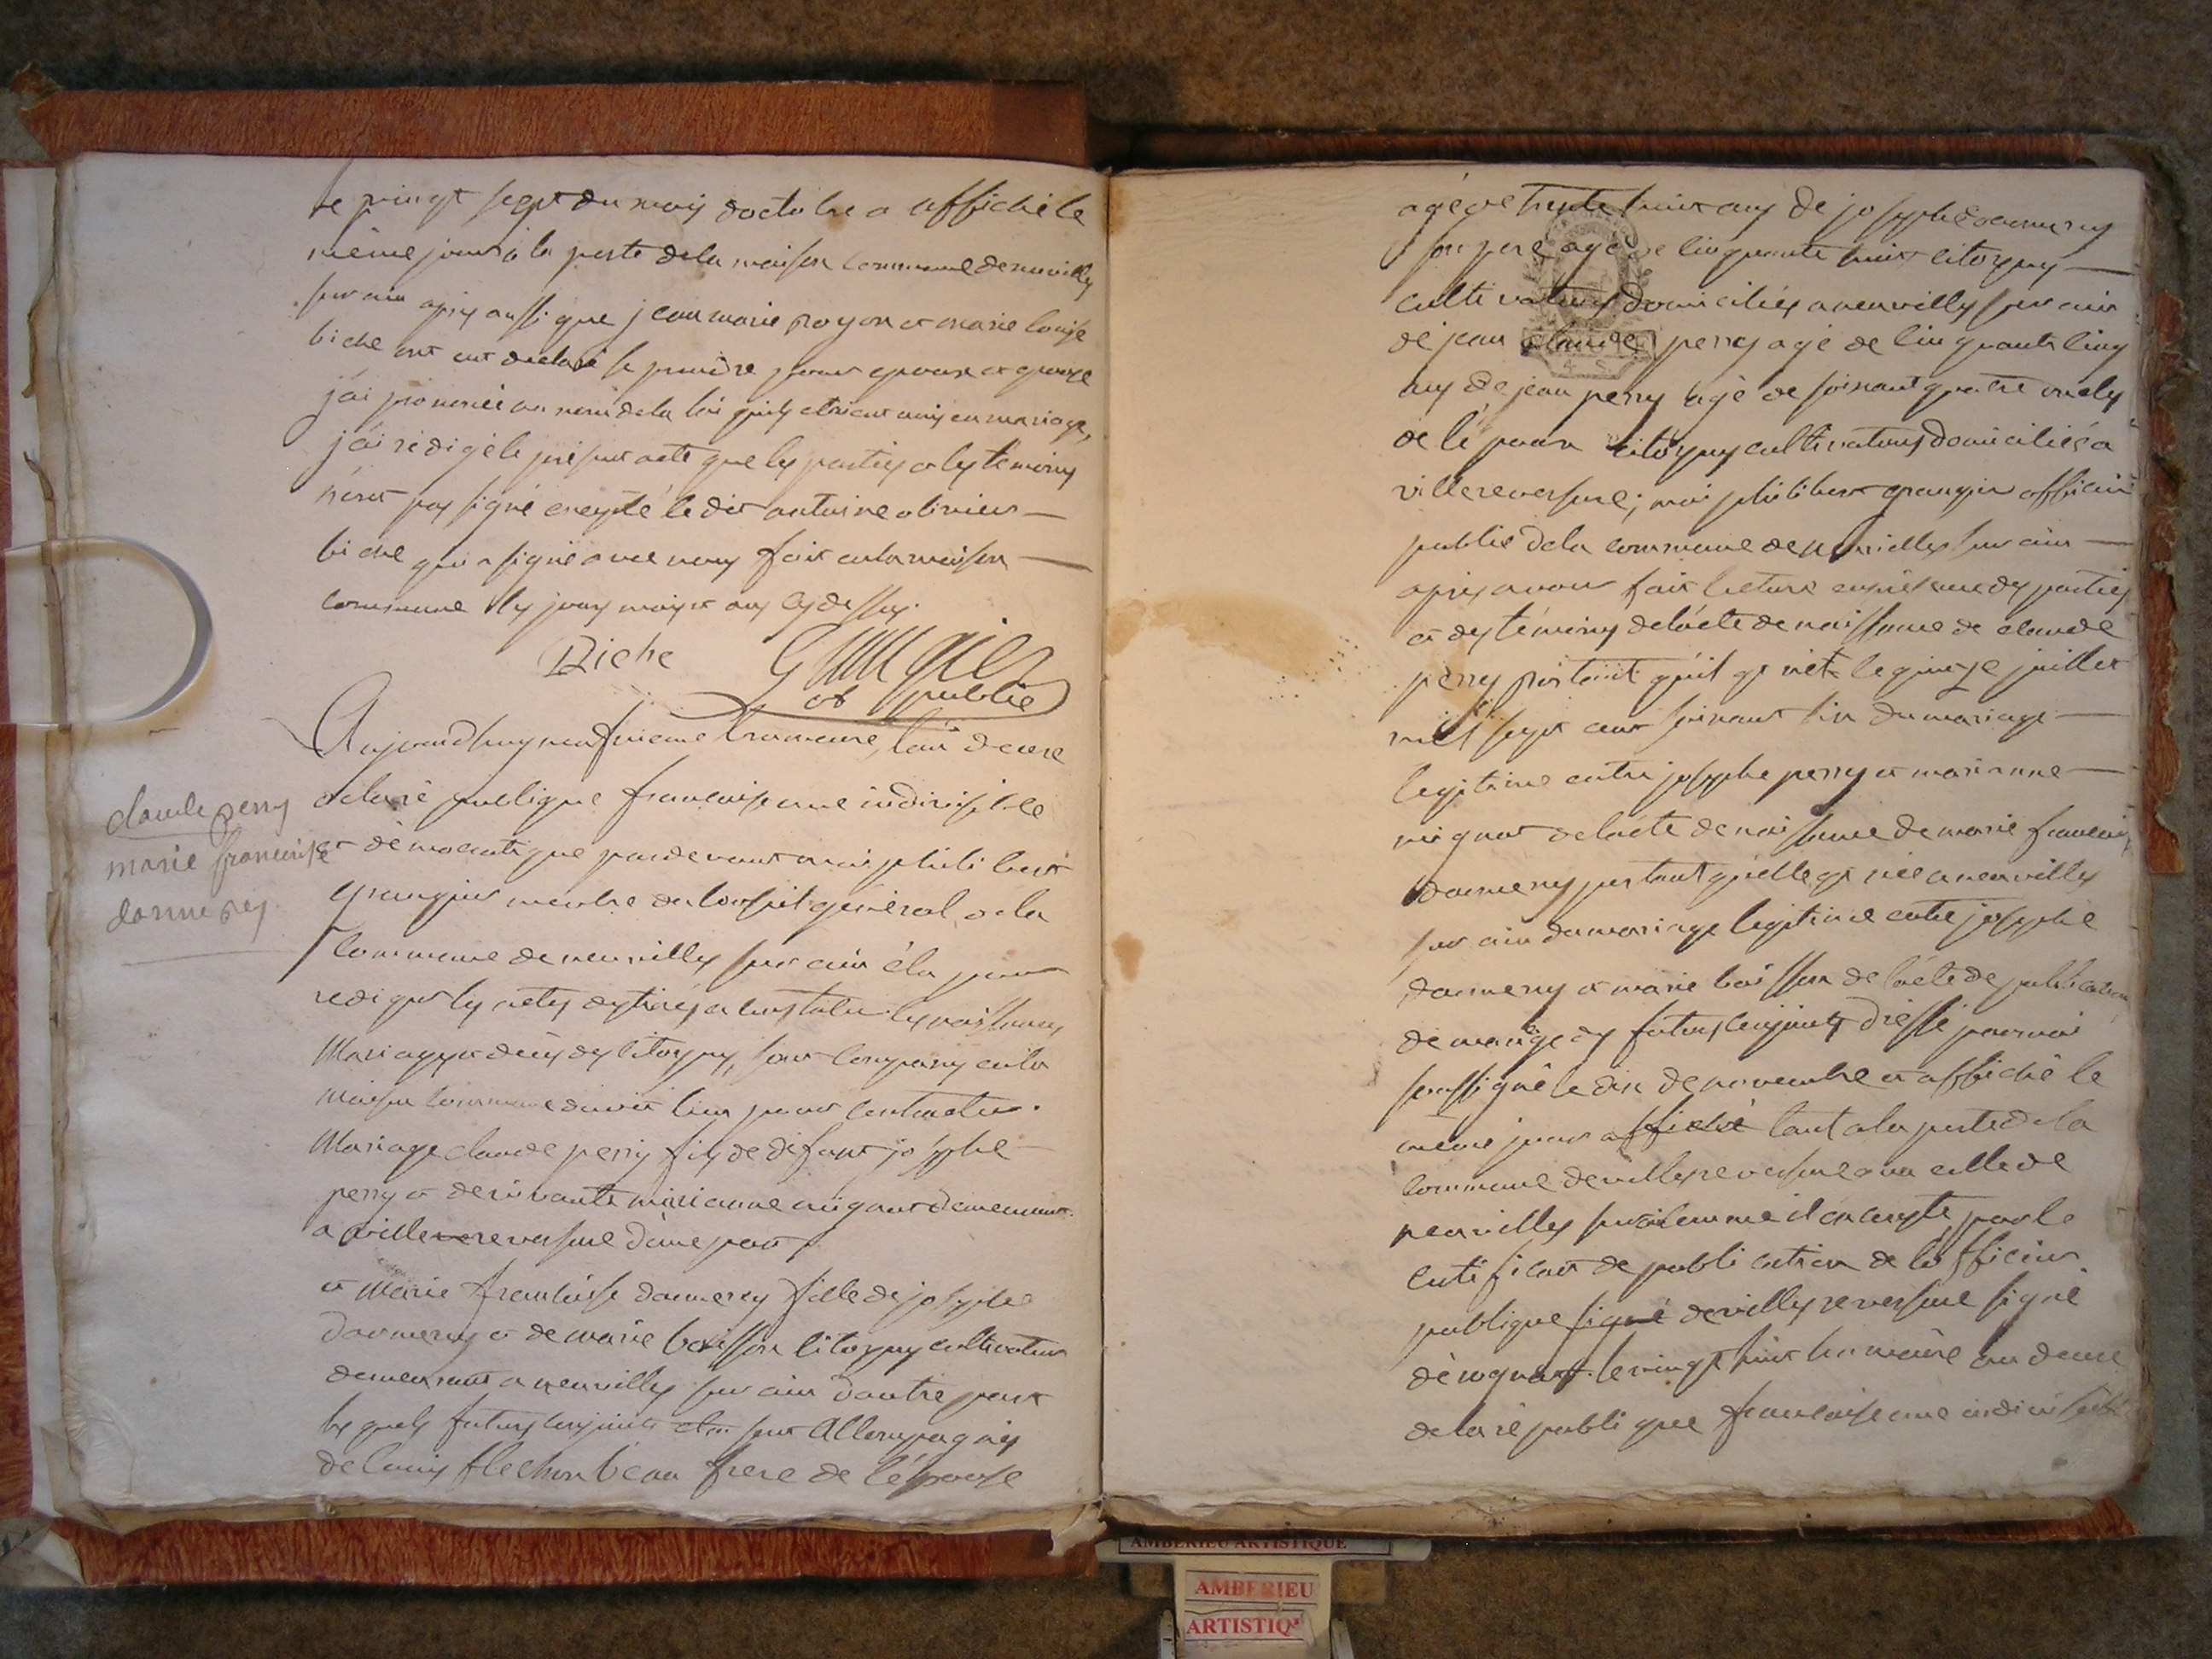 le vingt sept du mois doctobre a affiché le
même jour à la porte dela maison commune deneuville
sur ain apres aussi que jean marie royon et marie louise
biche ont declaré se prendre pour epoux et epouse
jai prononcé au nom dela loi quils etoient unis en mariage,
jai redigé le present acte que les parties et les temoins
nont pas signé excepté le dit antoine olivier —
biche qui a signé avec nous fait en la maison —
commune les jours mois et ans cy dessus.
Biche Grangier
of public
Aujourdhuy neufvieme brumaire, lan deuxe
dela ré publique francaise une indivisible
claude perry
marie francoise
dormerey
et démocratique pardevant moi philibert
grangier membre du conseil général de la
commune de neuville sur ain élu pour
rediger les actes destinés a constater les naissances
Mariages et décès des citoyens, sont comparus en la
maison commune pour contracter
Mariage claude perry fils de defunt josephe —
perry et de vivante marianne mignot demeurant
a villereversure dune part
et Marie francoise dormerey fille de josephe
dormerey et de marie boisson citoyens cultivateurs
demeurant a neuville sur ain dautre part
les quels futurs conjoints sont accompagnés
de louis flechon beau frere de lépouse
agé de trente huit ans de josephe dormerey
son pere agé de cinquante huit citoyens —
cultivateurs domiciliés a neuville sur ain
de jean claude perry agé de cinquante cinq
ans de jean perry agé de soixant quatre oncles
de lé poux citoyens cultivateurs domiciliés a
villereversure; moi philibert grangier officier
public dela commune deneuville sur ain —
apres avoir fait lecture en présence des parties
et des témoins de lácte de naissance de claude
perry portant quil est né le quinze juillet
mil sept cent soixant six du mariage —
legitime entre josephe perry et marianne —
mignot de lácte de naissance de marie francoise
dormerey portant quelle est née a neuville
sur ain du mariage legitime entre josephe
dormerey et marie boisson de lácte de publication
de mariage des futurs conjoints dressé par moi
soussigné le dix de novembre et affiché le
même jour affiché tant a la porte dela
commune de villereversure qua celle de
neuville sur ain comme il conste par le
certificat de publication de lófficier
publique signé de villereversure signé
le vingt huit brumaire lan deuxe
dela ré publique francaise une indivisible
AMBERIEU ARTISTIQUE
AMBERIEU
ARTISTIQ